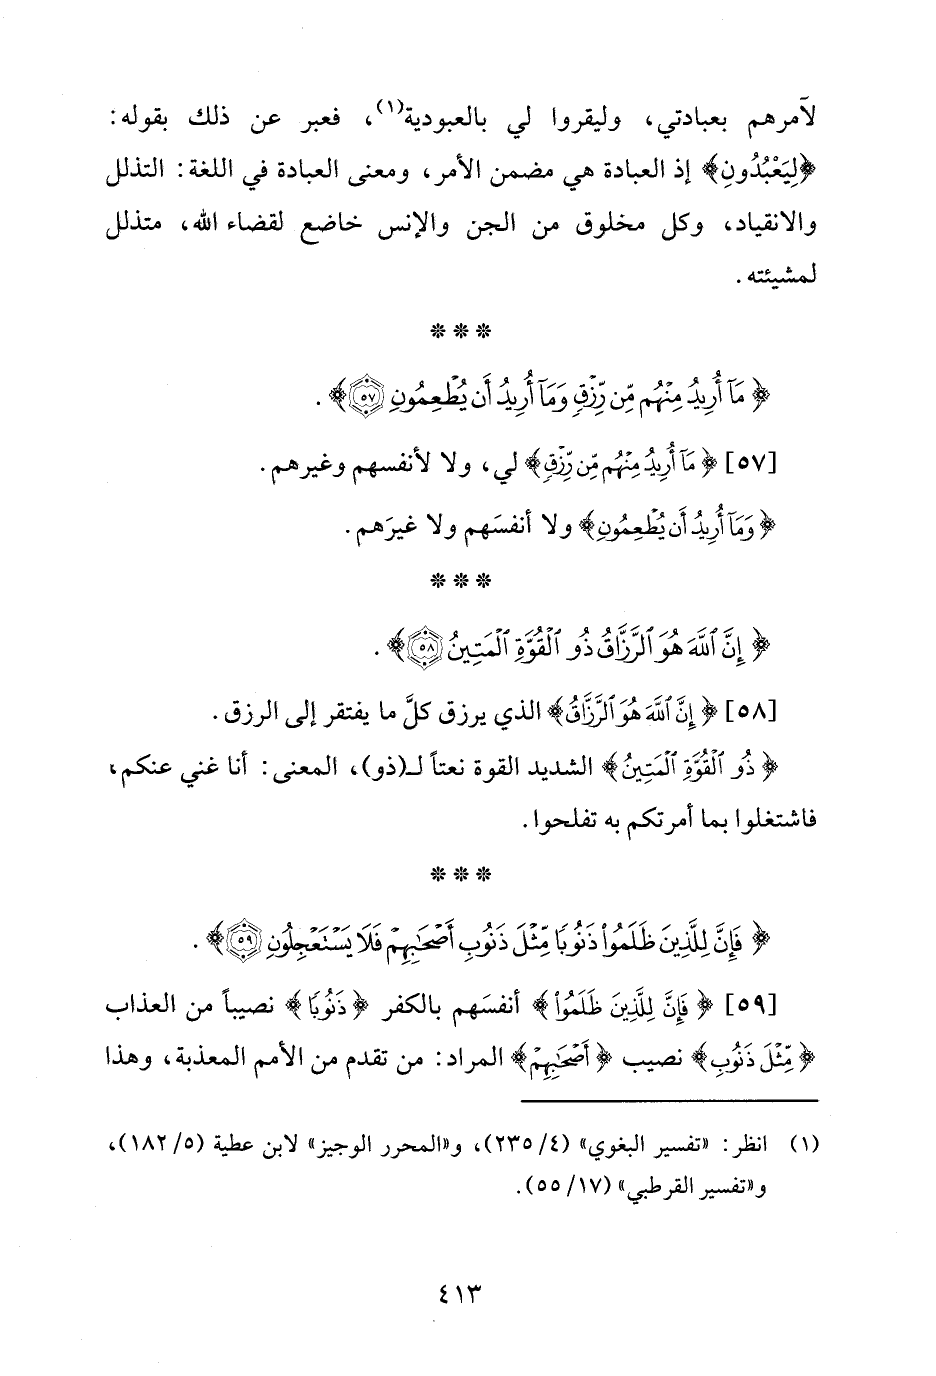 لآمرهم بعبادتي، وليقروا لي بالعبودية(١)، فعبر عن ذلك بقوله:
﴿لِيَعْبُدُونِ﴾ إذ العبادة هي مضمن الأمر، ومعنى العبادة في اللغة: التذلل
والانقياد، وكل مخلوق من الجن والإنس خاضع لقضاء الله، متذلل
لمشيئته.
* * *
﴿مَآ أُرِيدُ مِنْهُم مِّن رِّزْقٍ وَمَآ أُرِيدُ أَن يُطْعِمُونِ ٥٧﴾.
[٥٧] ﴿مَآ أُرِيدُ مِنْهُم مِّن رِّزْقٍ﴾ لي، ولا لأنفسهم وغيرهم.
﴿وَمَآ أُرِيدُ أَن يُطْعِمُونِ﴾ ولا أنفسَهم ولا غيرَهم.
* * *
﴿إِنَّ ٱللَّهَ هُوَ ٱلرَّزَّاقُ ذُو ٱلْقُوَّةِ ٱلْمَتِينُ ٥٨﴾.
[٥٨] ﴿إِنَّ ٱللَّهَ هُوَ ٱلرَّزَّاقُ﴾ الذي يرزق كلَّ ما يفتقر إلى الرزق.
﴿ذُو ٱلْقُوَّةِ ٱلْمَتِينُ﴾ الشديد القوة نعتاً لـ(ذو)، المعنى: أنا غني عنكم،
فاشتغلوا بما أمرتكم به تفلحوا.
* * *
﴿فَإِنَّ لِلَّذِينَ ظَلَمُوا۟ ذَنُوبًا مِّثْلَ ذَنُوبِ أَصْحَٰبِهِمْ فَلَا يَسْتَعْجِلُونِ ٥٩﴾.
[٥٩] ﴿فَإِنَّ لِلَّذِينَ ظَلَمُوا۟﴾ أنفسَهم بالكفر ﴿ذَنُوبًا﴾ نصيباً من العذاب
﴿مِّثْلَ ذَنُوبِ﴾ نصيب ﴿أَصْحَٰبِهِمْ﴾ المراد: من تقدم من الأمم المعذبة، وهذا
(١) انظر: «تفسير البغوي» (٤/ ٢٣٥)، و«المحرر الوجيز» لابن عطية (٥/ ١٨٢)،
و«تفسير القرطبي» (١٧/ ٥٥).
٤١٣